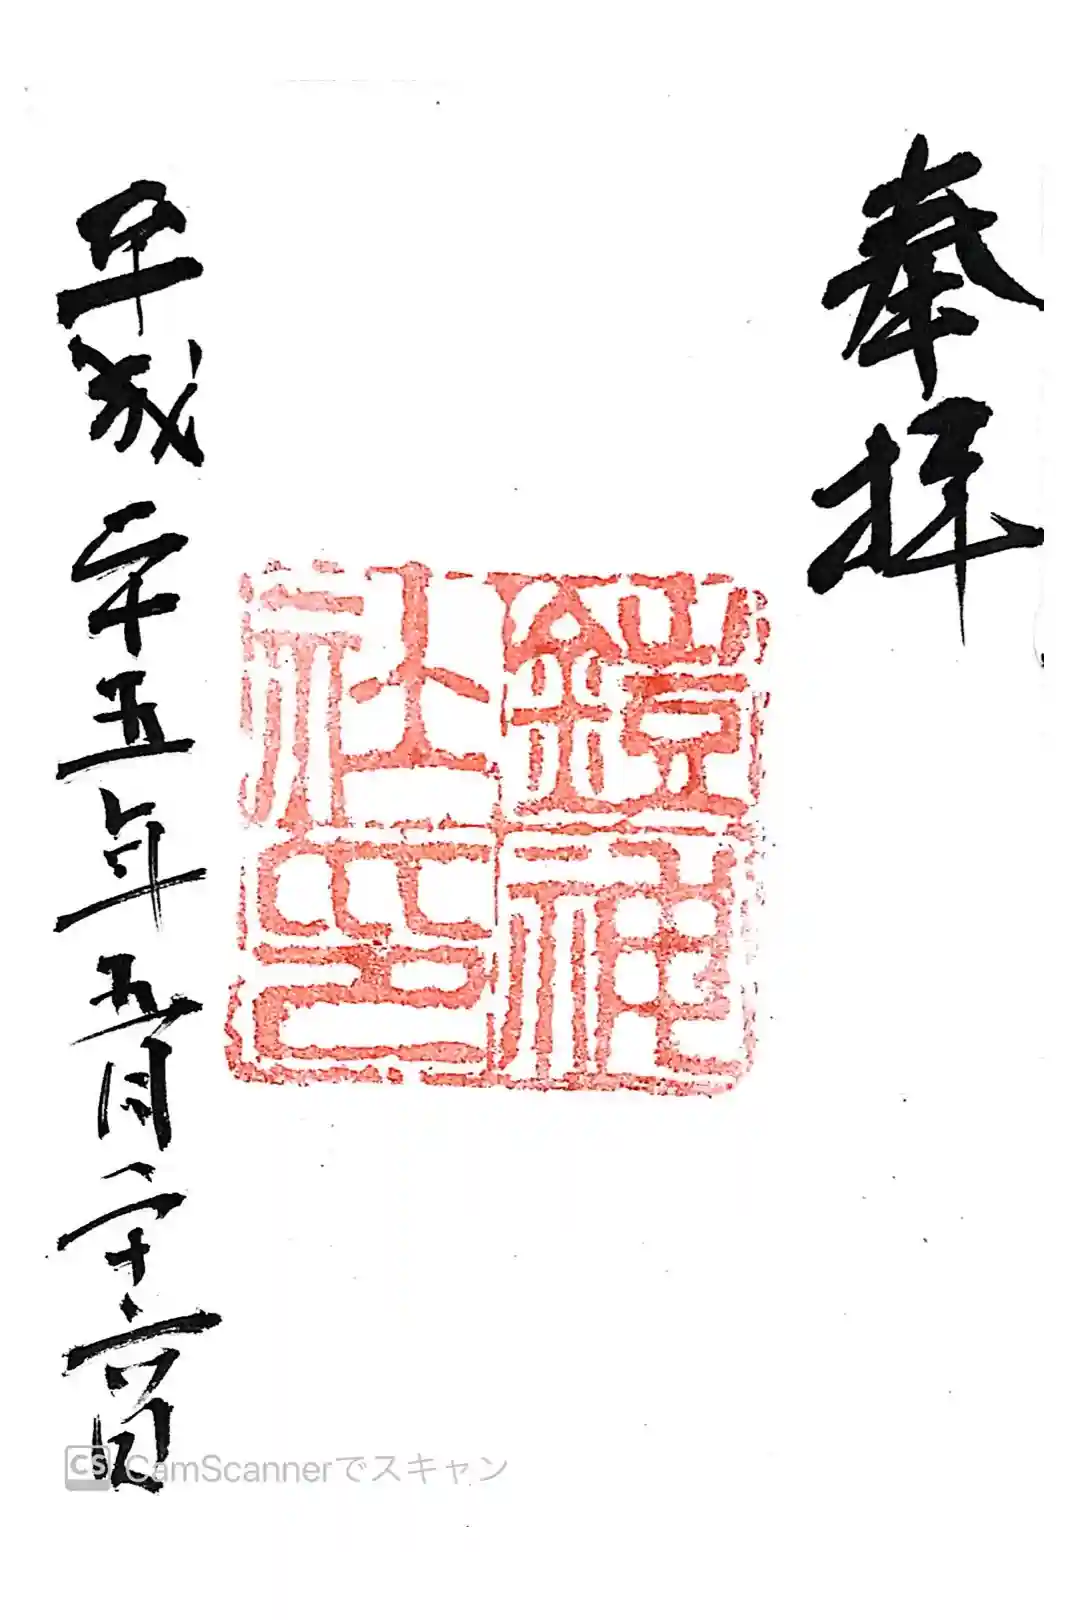 奉拝
鎧神
社印
平成二十五年五月二十六日
CS CamScannerでスキャン